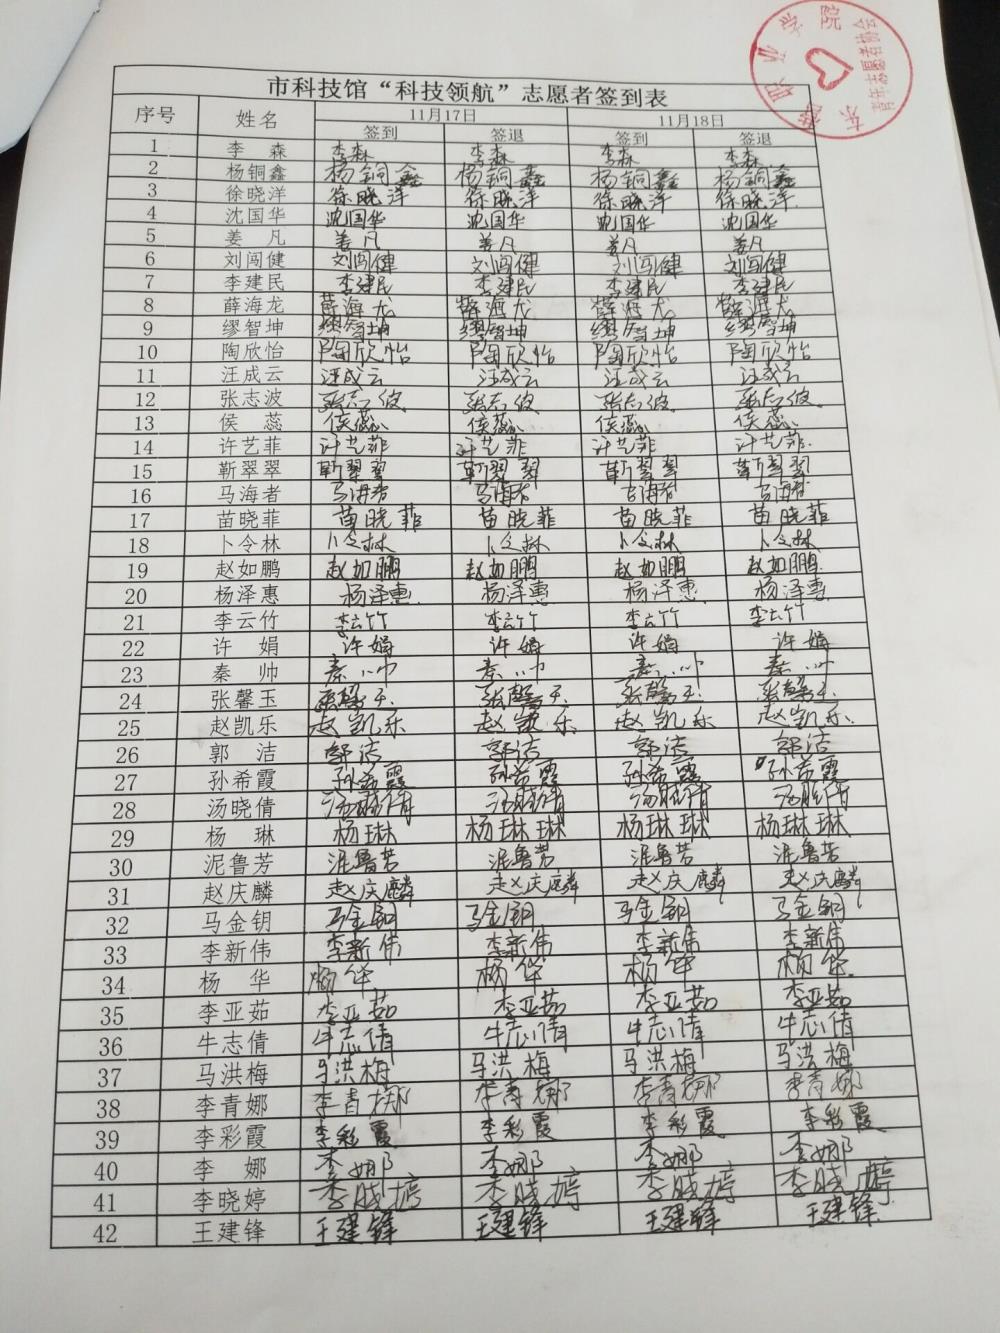 市科技馆“科技领航”志愿者签到表
序号 姓名 11月17日 11月18日
签到 签退 签到 签退
1 李森 李森 李森 李森 李森
2 杨铜鑫 杨铜鑫 杨铜鑫 杨铜鑫 杨铜鑫
3 徐晓洋 徐晓洋 徐晓洋 徐晓洋 徐晓洋
4 沈国华 沈国华 沈国华 沈国华 沈国华
5 姜凡 姜凡 姜凡 姜凡 姜凡
6 刘闯健 刘闯健 刘闯健 刘闯健 刘闯健
7 李建民 李建民 李建民 李建民 李建民
8 薛海龙 薛海龙 薛海龙 薛海龙 薛海龙
9 缪智坤 缪智坤 缪智坤 缪智坤 缪智坤
10 陶欣怡 陶欣怡 陶欣怡 陶欣怡 陶欣怡
11 汪成云 汪成云 汪成云 汪成云 汪成云
12 张志波 张志波 张志波 张志波 张志波
13 侯蕊 侯蕊 侯蕊 侯蕊 侯蕊
14 许艺菲 许艺菲 许艺菲 许艺菲 许艺菲
15 靳翠翠 靳翠翠 靳翠翠 靳翠翠 靳翠翠
16 马海者 马海者 马海者 马海者 马海者
17 苗晓菲 苗晓菲 苗晓菲 苗晓菲 苗晓菲
18 卜令林 卜令林 卜令林 卜令林 卜令林
19 赵如鹏 赵如鹏 赵如鹏 赵如鹏 赵如鹏
20 杨泽惠 杨泽惠 杨泽惠 杨泽惠 杨泽惠
21 李云竹 李云竹 李云竹 李云竹 李云竹
22 许娟 许娟 许娟 许娟 许娟
23 秦帅 秦帅 秦帅 秦帅 秦帅
24 张馨玉 张馨玉 张馨玉 张馨玉 张馨玉
25 赵凯乐 赵凯乐 赵凯乐 赵凯乐 赵凯乐
26 郭洁 郭洁 郭洁 郭洁 郭洁
27 孙希霞 孙希霞 孙希霞 孙希霞 孙希霞
28 汤晓倩 汤晓倩 汤晓倩 汤晓倩 汤晓倩
29 杨琳 杨琳 杨琳琳 杨琳琳 杨琳琳
30 泥鲁芳 泥鲁芳 泥鲁芳 泥鲁芳 泥鲁芳
31 赵庆麟 赵庆麟 赵庆麟 赵庆麟 赵庆麟
32 马金钥 马金钥 马金钥 马金钥 马金钥
33 李新伟 李新伟 李新伟 李新伟 李新伟
34 杨华 杨华 杨华 杨华 杨华
35 李亚茹 李亚茹 李亚茹 李亚茹 李亚茹
36 牛志倩 牛志倩 牛志倩 牛志倩 牛志倩
37 马洪梅 马洪梅 马洪梅 马洪梅 马洪梅
38 李青娜 李青娜 李青娜 李青娜 李青娜
39 李彩霞 李彩霞 李彩霞 李彩霞 李彩霞
40 李娜 李娜 李娜 李娜 李娜
41 李晓婷 李晓婷 李晓婷 李晓婷 李晓婷
42 王建锋 王建锋 王建锋 王建锋 王建锋
东营职业学院
青年志愿者协会